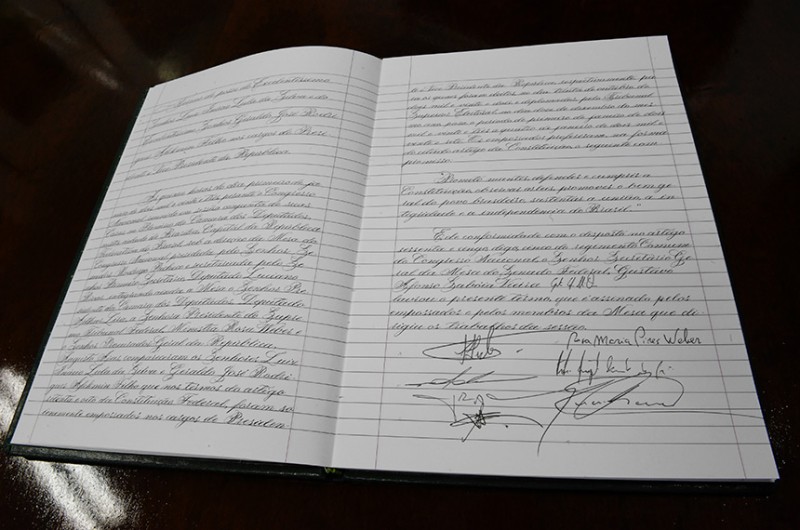 Termo de posse do Excelentíssimo
Senhor Luiz Inácio Lula da Silva e do
Excelentíssimo Senhor Geraldo José Rodri
gues Alckmin Filho nos cargos de Presi
dente e Vice-Presidente da República.
Às quinze horas do dia primeiro de ja
neiro de dois mil e vinte e três perante o Congresso
Nacional reunido em
no Plenário da Câmara dos Deputados,
Capital da República
do Brasil, sob a direção da Mesa do
Congresso Nacional presidida pelo Senhor Se
nador Rodrigo Pacheco e secretariada pelo Se
nhor Primeiro-Secretário Deputado Luciano
Bivar, integrando também a Mesa o Senhor Pre
sidente da Câmara dos Deputados, Deputado
Arthur Lira, a Senhora Presidente do Supre
mo Tribunal Federal, Ministra Rosa Weber e
o Senhor Procurador-Geral da República,
Augusto Aras, compareceram os Senhores Luiz
Inácio Lula da Silva e Geraldo José Rodri
gues Alckmin Filho que nos termos do artigo
setenta e oito da Constituição Federal, foram so
lenemente empossados nos cargos de Presiden
te e Vice-Presidente da República respectivamente pa
ra os quais foram eleitos no dia trinta de outubro de
dois mil e vinte e dois e diplomados pelo Tribunal
Superior Eleitoral no dia doze de dezembro do mes
mo ano para o período de primeiro de janeiro de dois
mil e vinte e três a quatro de janeiro de dois mil e
vinte e sete. Os empossados proferiram, na forma
do citado artigo da Constituição o seguinte com
promisso:
"Prometo manter, defender e cumprir a
Constituição, observar as leis, promover o bem ge
ral do povo brasileiro, sustentar a união, a in
tegridade e a independência do Brasil."
E, de conformidade com o disposto no artigo
sessenta e cinco, digo, cinco do regimento Comum
do Congresso Nacional o Senhor Secretário-Ge
ral da Mesa do Senado Federal, Gustavo
Afonso Sabóia Vieira
lavrou o presente termo que é assinado pelos
empossados e pelos membros da Mesa que di
rigiu os trabalhos da sessão.
Rosa Maria Pires Weber